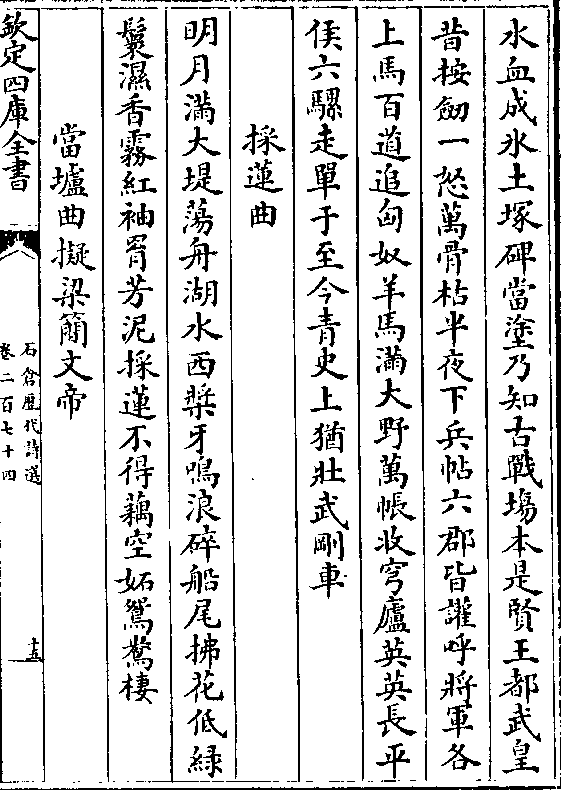 水血成氷土塚碑當塗乃知古戰塲本是賢王都武皇
昔按劒一怒萬骨枯半夜下兵帖六郡皆讙呼將軍各
上馬百道追匈奴羊馬滿大野萬帳收穹廬英英長平
侯六騾走單于至今青史上猶壯武剛車
採蓮曲
明月滿大堤蕩舟湖水西槳牙鳴浪碎船尾拂花低緑
鬟濕香霧紅袖罥芳泥採蓮不得藕空妬鴛鴦棲
當壚曲擬梁簡文帝
欽定四庫全書
石倉歷代詩選
卷二百七十四
十三